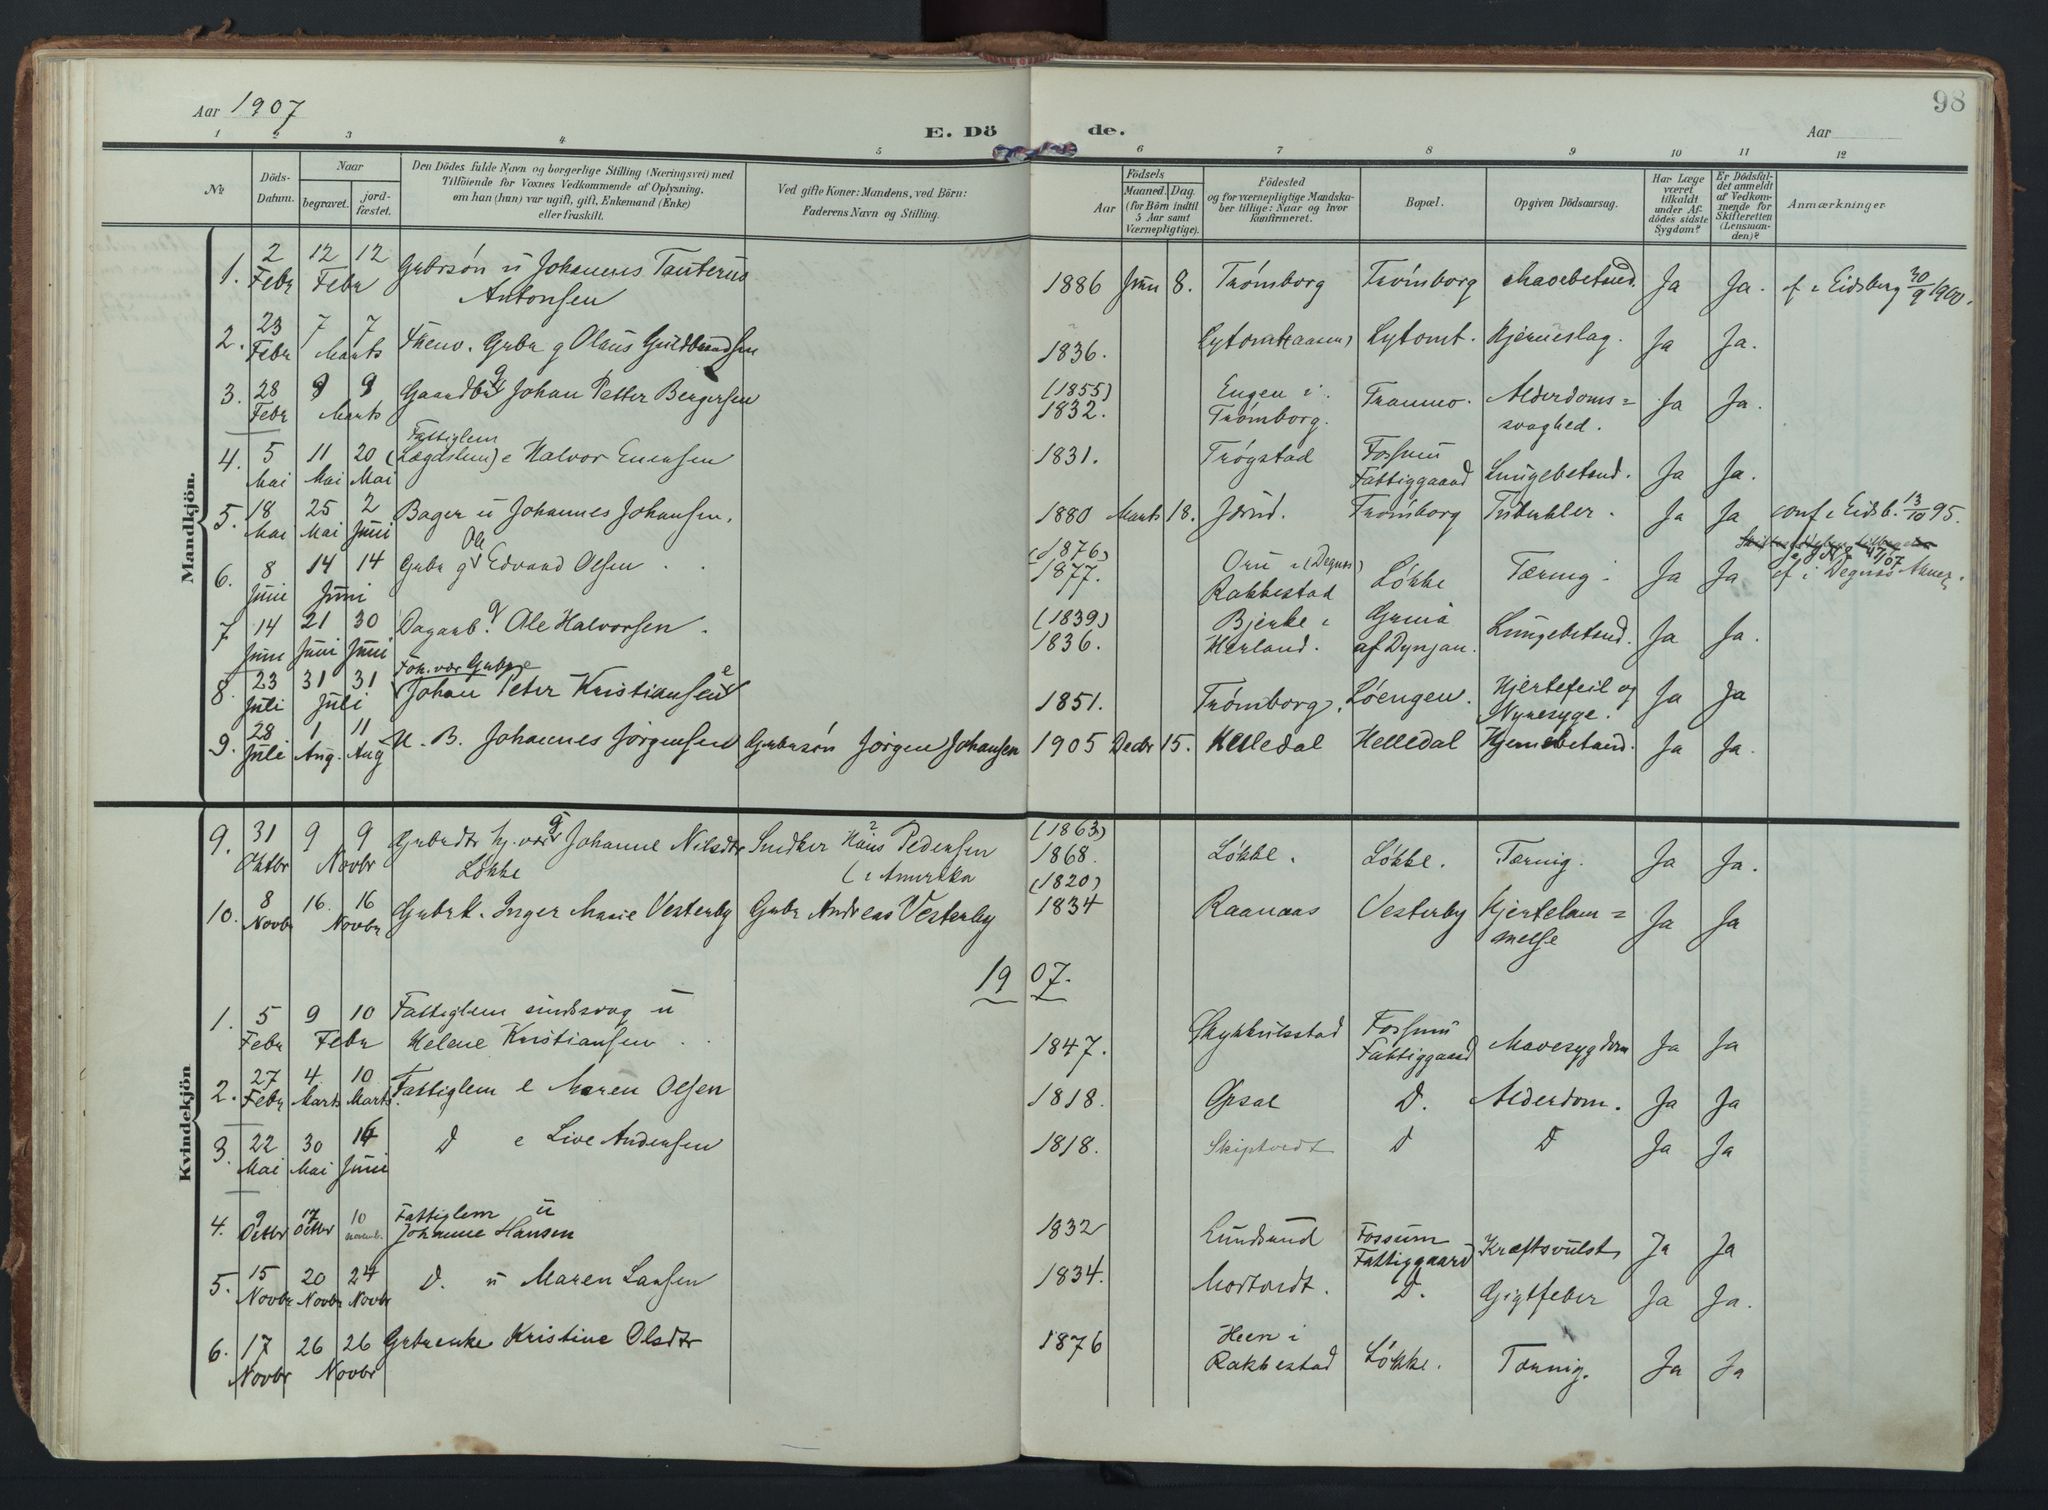 98
Aar 1907
E. Dö de.
Aar
1 2 3 4 5 6 7 8 9 10 11 12
№
Döds-Datum.
Naar
begravet.
jord-fæstet.
Den Dödes fulde Navn og borgerlige Stilling (Næringsvei) med
Tilföiende for Voxnes Vedkommende af Oplysning,
om han (hun) var ugift, gift, Enkemand (Enke)
eller fraskilt.
Ved gifte Koner: Mandens, ved Börn:
Faderens Navn og Stilling.
Aar
Födsels
Maaned. Dag.
(for Börn indtil
5 Aar samt
Værnepligtige).
Födested
og for værnepligtige Mandska-
ber tillige: Naar og hvor
konfirmeret.
Bopæl.
Opgiven Dödsaarsag.
Har Læge
været
tilkaldt
under Af-
dödes sidste
Sygdom?
Er Dödsfal-
det anmeldt
af Vedkom-
mende for
Skifteretten
(Lensman-
den)?
Anmærkninger
Mandkjön.
1. 2 Febr 12 12 Febr Gubrsøn u Johannes Tanterus Antonsen 1886 Juni 8. Trømborg Trømborg Mavebetænd. Ja Ja. cf i Eidsberg 30/9 1900.
2. 23 Febr 7 7 Marts Gubr g Olaus Guldbrandsen 1836. Lytomt. Hjerneslag. Ja Ja.
3. 28 Febr 9 9 Marts Gaardbr g Johan Petter Bergersen (1855) 1832. Engen i Trømborg. Alderdoms= svaghed. Ja Ja.
4. 5 Mai 11 Mai 20 Mai Fattiglem (Lægdslem) e Halvor Evensen 1831. Trøgstad Fossum Fattiggaard Lungebetænd. Ja Ja.
5. 18 Mai 25 Mai 2 Juni Bager u Johannes Johansen. 1880 Marts 18. Trømborg Tuberkler. Ja Ja conf i Eidsb. 13/10 95.
6. 8 Juni 14 14 Juni Gubr g Ole Edvard Olsen (1876) 1877. i (Degnes) Rakkestad Løkke Tæring. Ja Ja cf i Degnes
7. 14 Juni 21 Juni 30 Juni Dagarb. g Ole Halvorsen. (1839) 1836. Bjerke i Herland. Lungebetænd. Ja Ja.
8. 23 Juli 31 31 Juli Johan Peter Kristiansen e 1851. Trømborg. Løengen. Hjertefeil og Nyresyge. Ja Ja
9. 28 Juli 1 Aug. 11 Aug U. B. Johannes Jørgensen Gubrsøn Jørgen Johansen 1905 Decbr 15. Helledal Helledal Hjernebetænd. Ja Ja.
Kvindekjön
9. 31 Oktbr 9 9 Novbr Gubrdtr g Johanne Nilsdtr Løkke Snedker Hans Pedersen (i Amerika (1863) 1868. Løkke. Løkke. Tæring. Ja Ja.
10. 8 Novbr 16 16 Novbr Gubrk. Inger Marie Vesterby Gubr Andreas Vesterby (1820) 1834 Raanaas Vesterby Hjertelam= melse Ja Ja
1907.
1. 5 Febr 9 10 Febr Fattiglem sindssvag u Helene Kristiansen 1847. Skykkulsstad Fossum Fattiggaard Mavesygdom Ja Ja
2. 27 Febr 4 Marts 10 Marts Fattiglem e Maren Olsen 1818. Opsal D. Alderdom. Ja Ja
3. 22 Mai 30 Mai 16 Juni D e Live Andersen 1818. Skiptvedt D D Ja Ja
4. 9 Octbr 17 Octbr 10 novemb. Fattiglem u Johanne Hansen 1832 Lundsund Fossum Fattiggaard Kræftsvulst Ja Ja
5. 15 Novbr 20 Novbr 24 Novbr D. u Maren Larsen 1834. Mortvedt. D. Gigtfeber Ja Ja.
6. 17 Novbr 26 26 Novbr Gubrenke Kristine Olsdtr 1876 Heen i Rakkestad Løkke. Tæring. Ja Ja